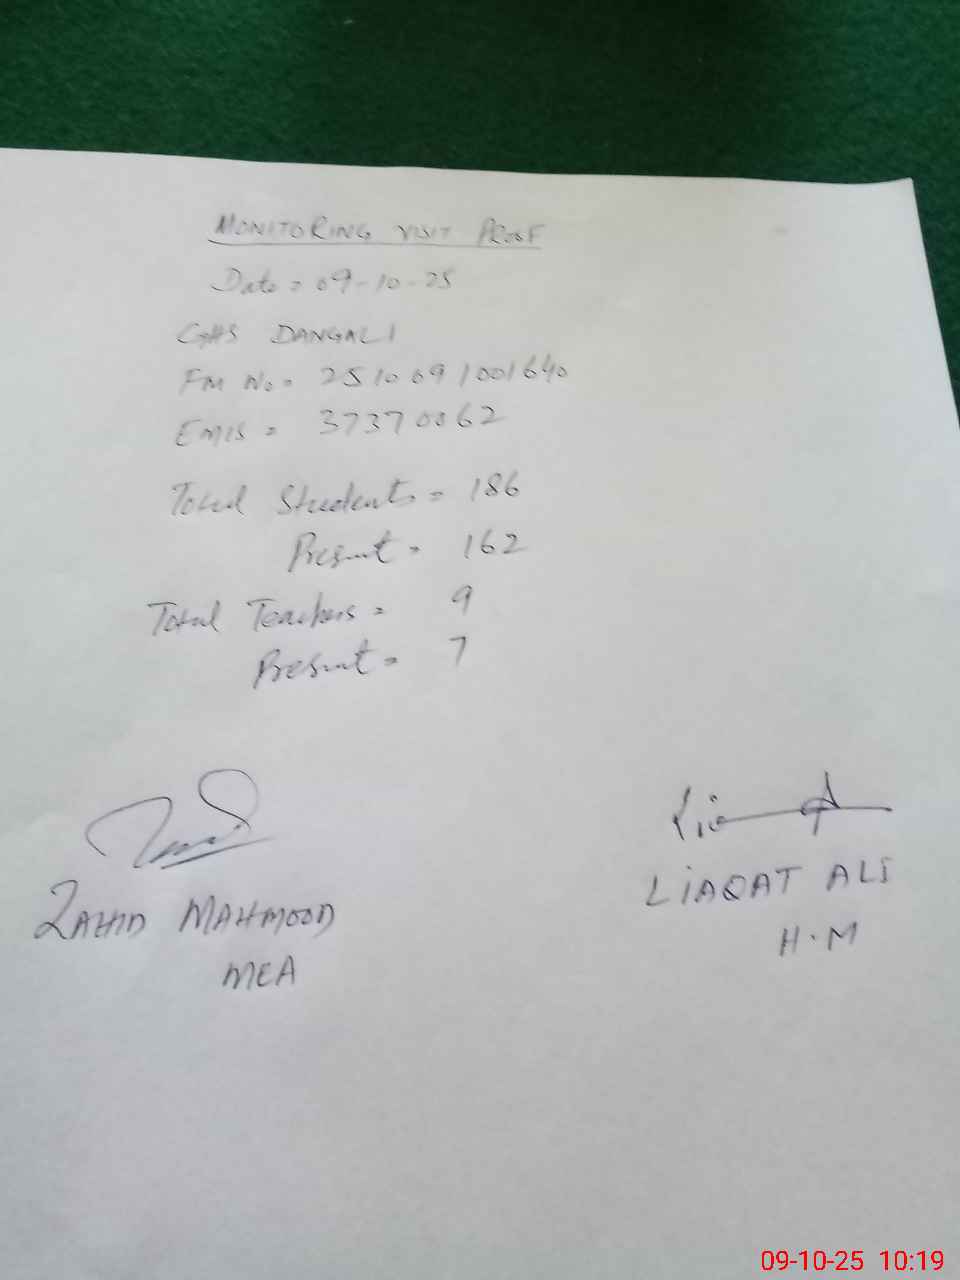 MONITORING VISIT PROOF
Date = 09-10-25
GHS DANGALI
FM No = 2510091001640
EMIS = 37370062
Total Students = 186
Present = 162
Total Teachers = 9
Present = 7
ZAHID MAHMOOD
MEA
LiAQAT ALI
H.M
09-10-25 10:19